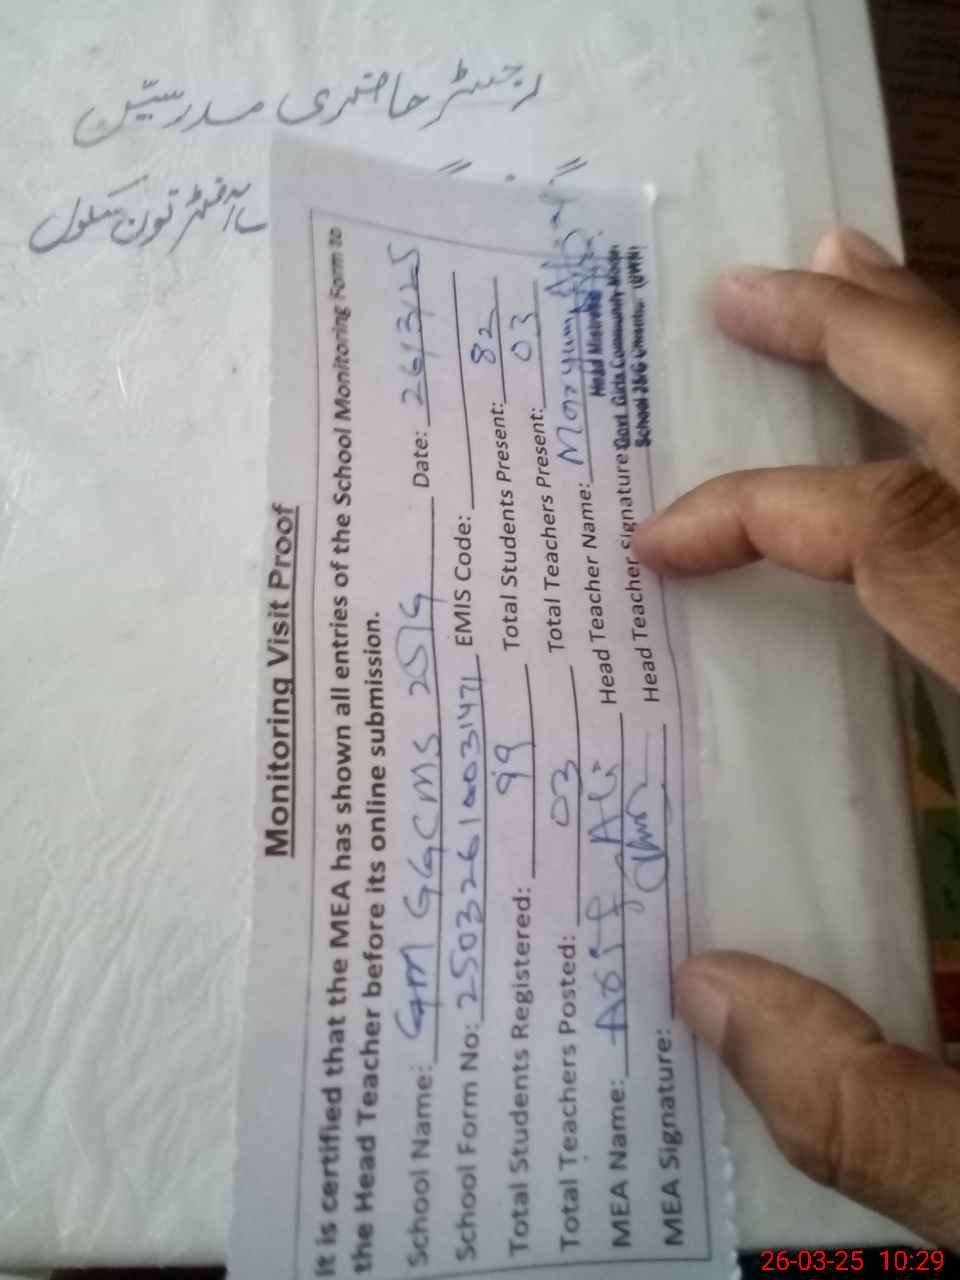 رجسٹر حاضری مدرسین
آفٹر نون سکول
Monitoring Visit Proof
It is certified that the MEA has shown all entries of the School Monitoring Form to
the Head Teacher before its online submission.
School Name: GM GGCMS 25/G Date: 26/3/25
School Form No: EMIS Code:
Total Students Registered: 99 Total Students Present: 82
Total Teachers Posted: 03 Total Teachers Present: 03
MEA Name: Asif Ali Head Teacher Name: Maryum
MEA Signature: Head Teacher Signature
Head Mistress
Govt. Girls Community Model
School 25/G
26-03-25 10:29